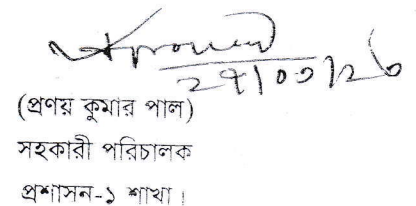 (প্রণয় কুমার পাল)
সহকারী পরিচালক
প্রশাসন-১ শাখা।